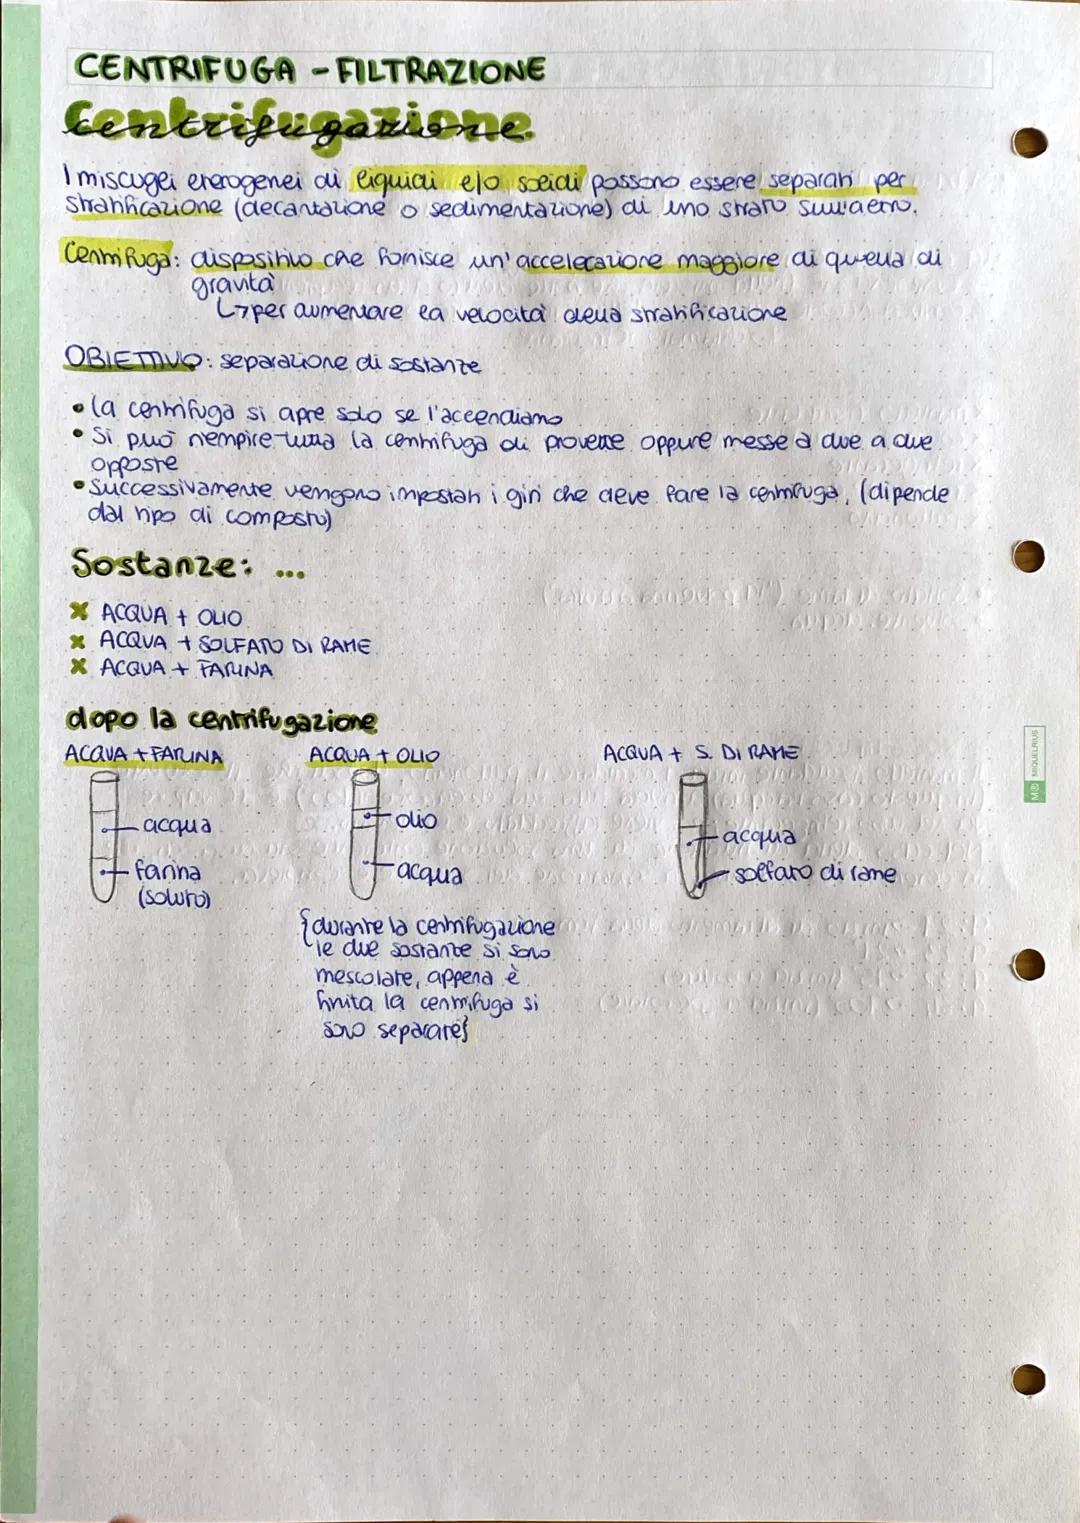 CENTRIFUGA - FILTRAZIONE
Centrifugazione
I miscugli eterogenei di liquidi e/o solidi possono essere separati per
stratificazione (decantazione o sedimentazione) di uno strato sull'altro.
Centrifuga: dispositivo che fornisce un'accelerazione maggiore di quella di
gravità
↳per aumentare la velocità della stratificazione
OBIETTIVO: separazione di sostanze
• la centrifuga si apre solo se l'accendiamo
• Si può riempire tutta la centrifuga di provette oppure messe a due a due
opposte
• Successivamente vengono impostati i giri che deve fare la centrifuga, (dipende
dal tipo di composto)
Sostanze: ...
× ACQUA + OLIO
× ACQUA + SOLFATO DI RAME
× ACQUA + FARINA
dopo la centrifugazione
ACQUA + FARINA
acqua
farina
(soluto)
ACQUA + OLIO
olio
acqua
{durante la centrifugazione
le due sostanze si sono
mescolate, appena è
finita la centrifuga si
sono separate}
ACQUA + S. DI RAME
acqua
solfato di rame
MIQUELRIUS